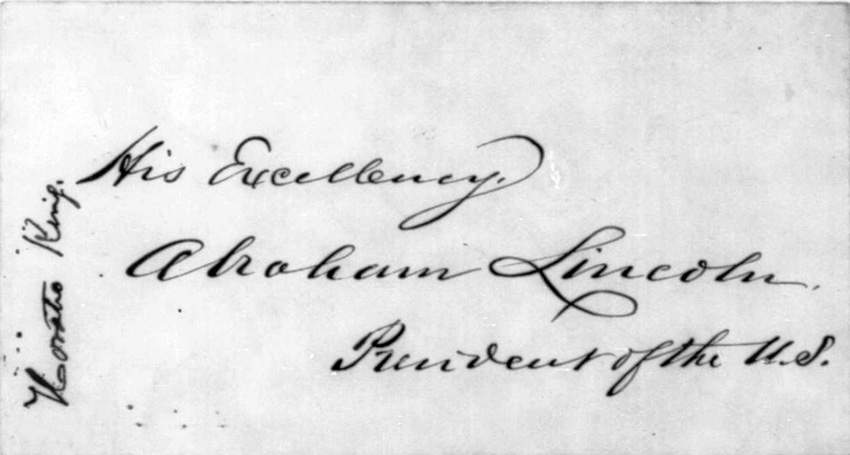 His Excellency.
Abraham Lincoln.
President of the U.S.
Horatio King.